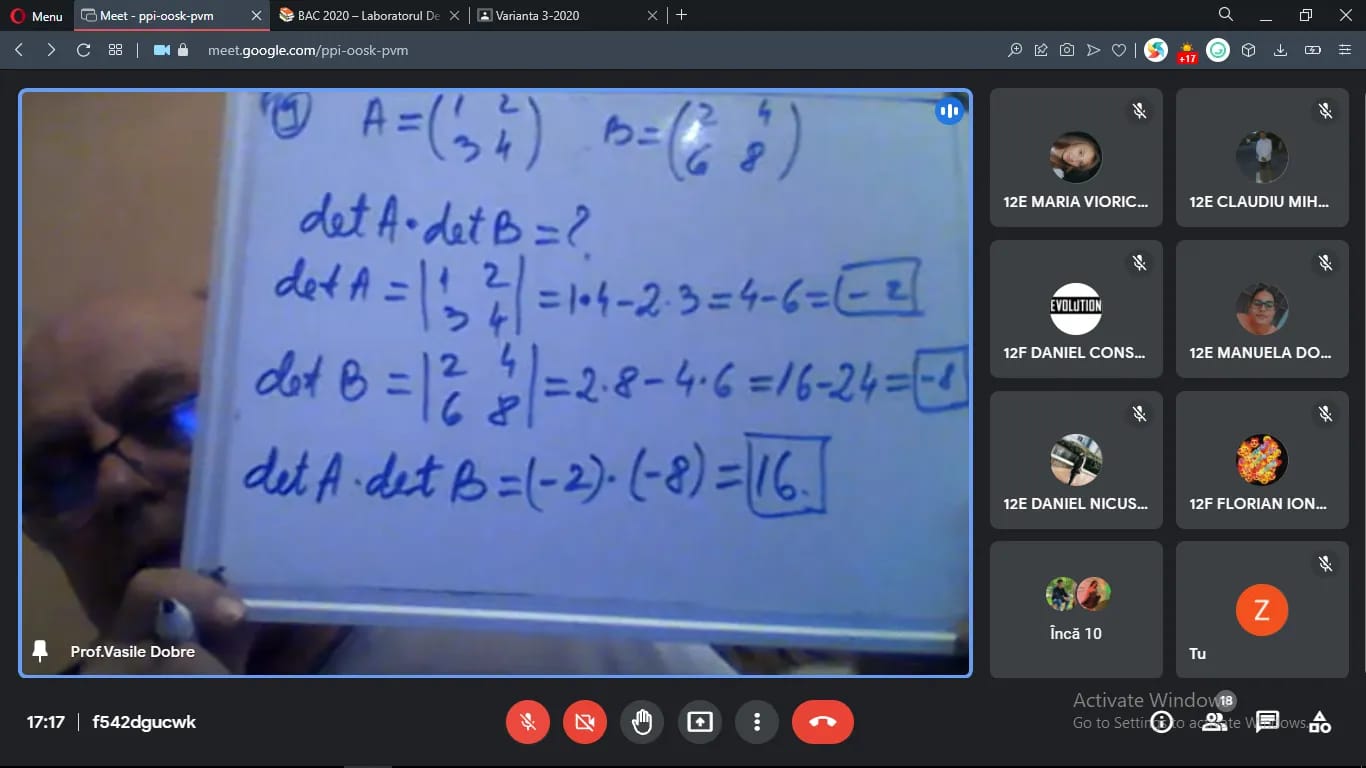 Menu
Meet - ppi-oosk-pvm
BAC 2020 – Laboratorul De
Varianta 3-2020
meet.google.com/ppi-oosk-pvm
+17
A = (1 2
3 4)
B = (2 4
6 8)
det A · det B = ?
det A = |1 2
3 4| = 1·4 - 2·3 = 4 - 6 = -2
det B = |2 4
6 8| = 2·8 - 4·6 = 16 - 24 = -8
det A · det B = (-2)·(-8) = 16.
Prof.Vasile Dobre
12E MARIA VIORIC...
12E CLAUDIU MIH...
EVOLUTION
12F DANIEL CONS...
12E MANUELA DO...
12E DANIEL NICUS...
12F FLORIAN ION...
Încă 10
Z
Tu
17:17 | f542dgucwk
18
Activate Windows
Go to Settings to activate Windows.